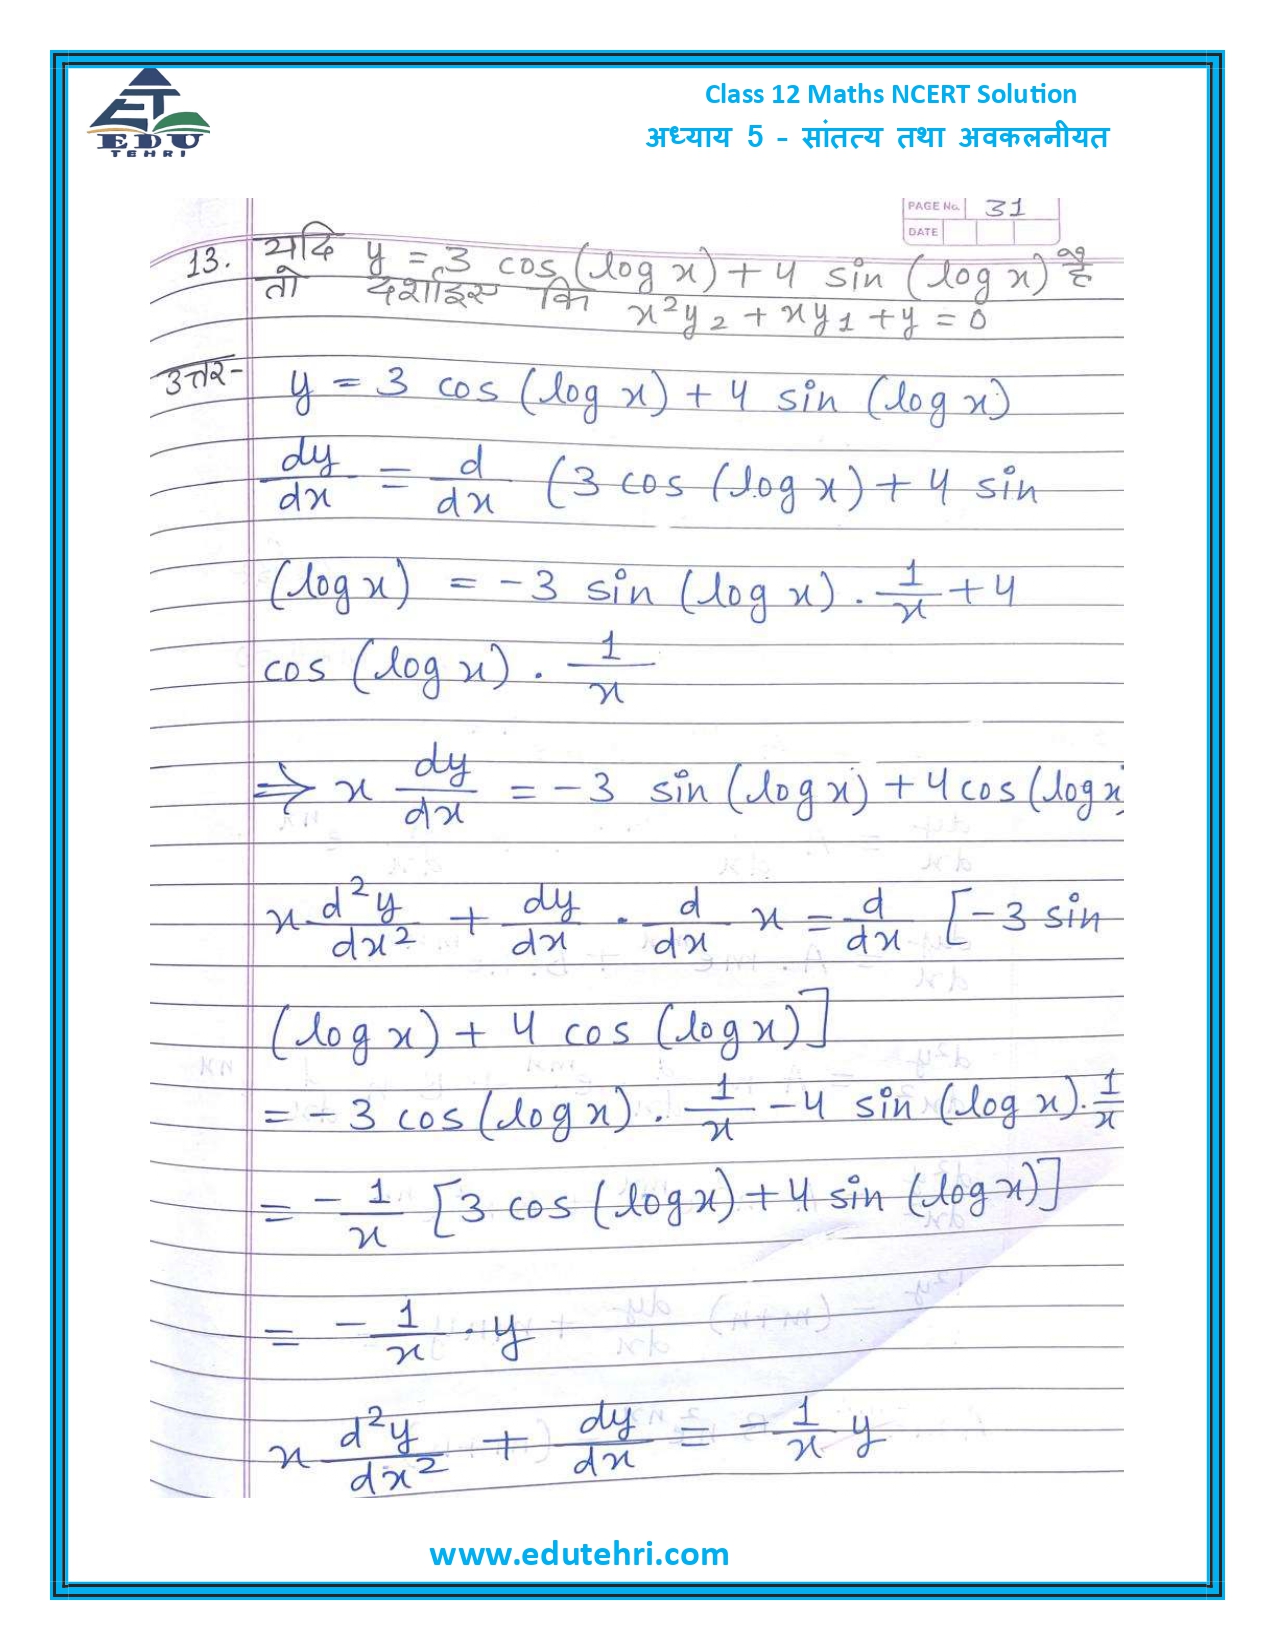 EDU
TEHRI
Class 12 Maths NCERT Solution
अध्याय 5 - सांतत्य तथा अवकलनीयत
PAGE No. 31
DATE
13. यदि y = 3 cos (log x) + 4 sin (log x) है
तो दर्शाइए कि x²y₂ + xy₁ + y = 0
उत्तर- y = 3 cos (log x) + 4 sin (log x)
dy/dx = d/dx (3 cos (log x) + 4 sin
(log x) = -3 sin (log x) . 1/x + 4
cos (log x) . 1/x
⇒ x dy/dx = -3 sin (log x) + 4 cos (log x
x d²y/dx² + dy/dx . d/dx x = d/dx [-3 sin
(log x) + 4 cos (log x)]
= -3 cos (log x) . 1/x - 4 sin (log x) . 1/x
= -1/x [3 cos (log x) + 4 sin (log x)]
= -1/x . y
x d²y/dx² + dy/dx = -1/x y
www.edutehri.com